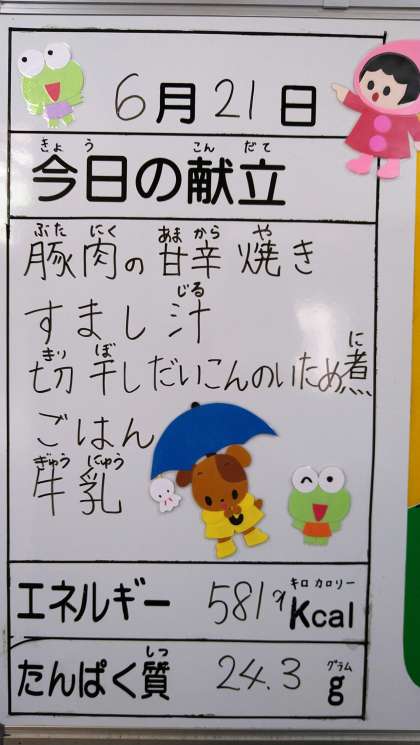 6月21日
きょう こんだて
今日の献立
ぶた にく あま から や
豚肉の甘辛焼き
じる
すまし汁
きり ぼ に
切干しだいこんのいため煮
ごはん
ぎゅう にゅう
牛乳
キロ カロリー
エネルギー 581 Kcal
しつ グラム
たんぱく質 24.3 g